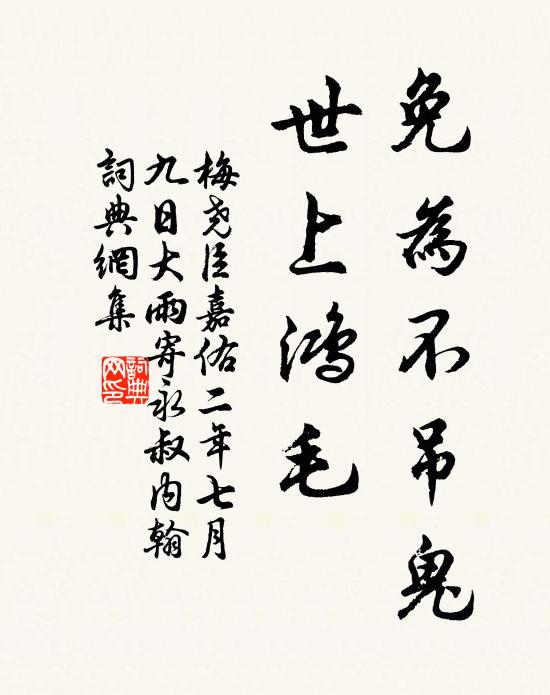 免為不吊鬼
世上鴻毛
梅堯臣嘉佑二年七月
九日大雨寄永叔內翰
詞典網集
詞典
网印